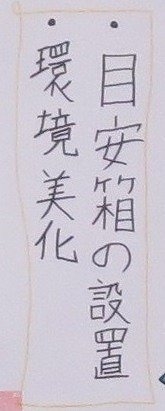 ・目安箱の設置
・環境美化